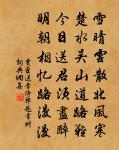 雪晴雲散北風寒
楚水吳山道路難
今日送君須盡醉
明朝相憶路漫漫
賈至送李侍郎赴常州